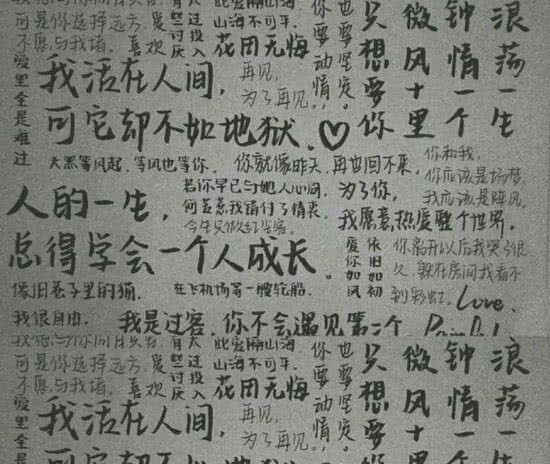 可是你选择远方
不愿与我堵。喜欢
爱里全是难过
有人
爱过
些投
讨入
厌
此爱隔山海
山海不可平
花团无悔
再见，
为了再见。
你要动情
也要坚定
只想要你
微风十里
钟情一个
浪荡一生
我活在人间，
可它却不如地狱。
天黑等风起，等风也等你。
你就像昨天，再也回不来。
你和我，
你应该是场梦，
我应该是阵风。
若你早已与她人心同，
何苦惹我错付了情衷
为了你，
我愿意热爱整个世界。
人的一生，
总得学会一个人成长。
爱你如风
依旧如初
你离开以后我哭了很
久，躲在房间我看不
到彩虹。Love.
像旧巷子里的猫，
我很自由.
在飞机场等一艘轮船.
我是过客，你不会遇见第二个
此爱隔山海
山海不可平
花团无悔
可是你选择远方
不愿与我堵。喜欢
爱里全是
再见，
为了再见。
你要动情
也要坚定
只想要
微风十
钟情一
浪荡一
我活在人间，